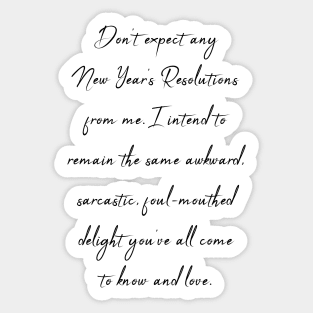 Don't expect any
New Year's Resolutions
from me. I intend to
remain the same awkward,
sarcastic, foul-mouthed
delight you've all come
to know and love.